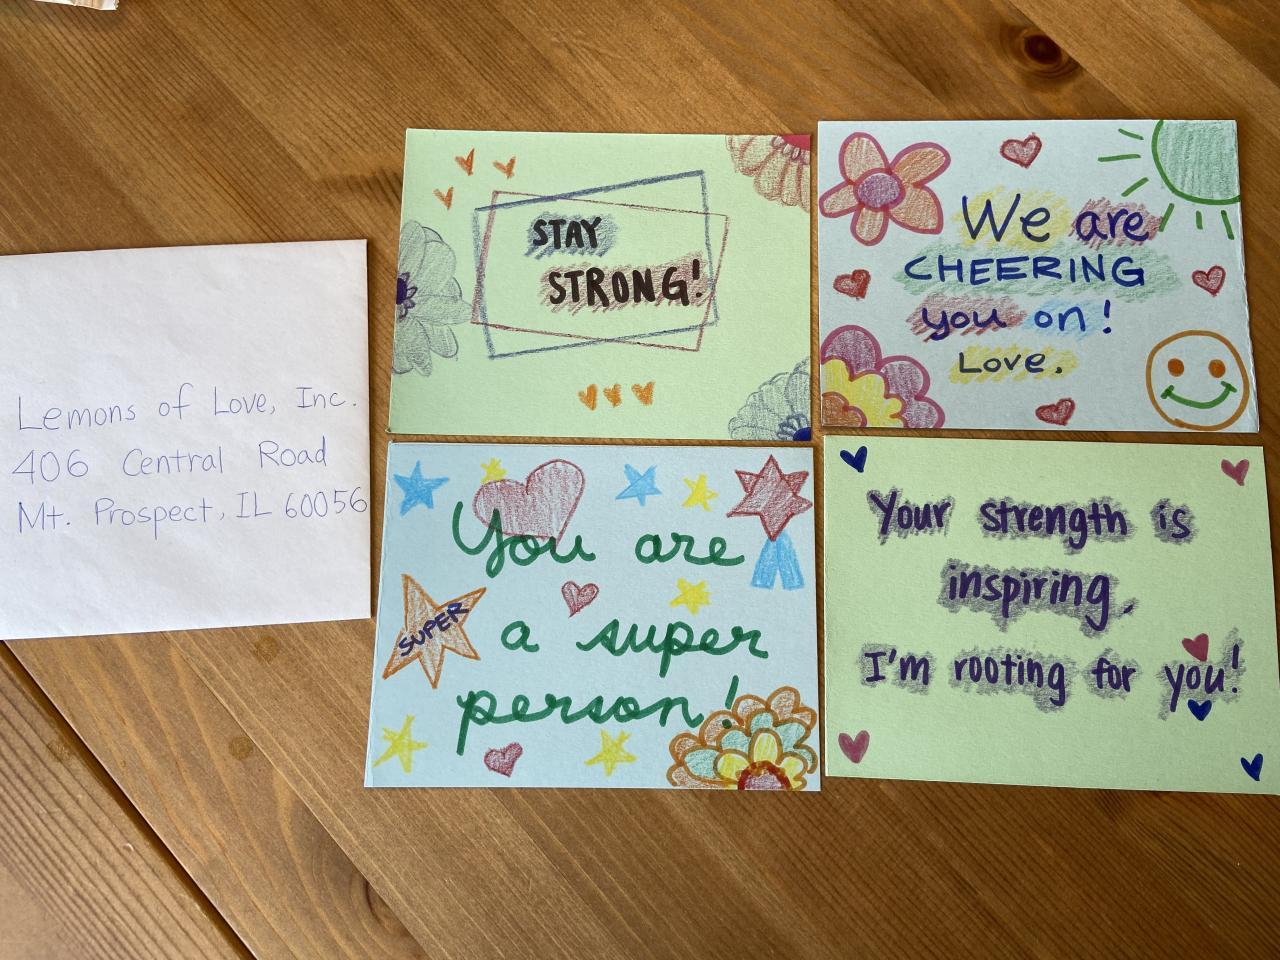 Lemons of Love, Inc.
406 Central Road
Mt. Prospect, IL 60056
STAY
STRONG!
We are
CHEERING
you on!
Love.
You are
SUPER
a super
person!
Your strength is
inspiring.
I'm rooting for you!